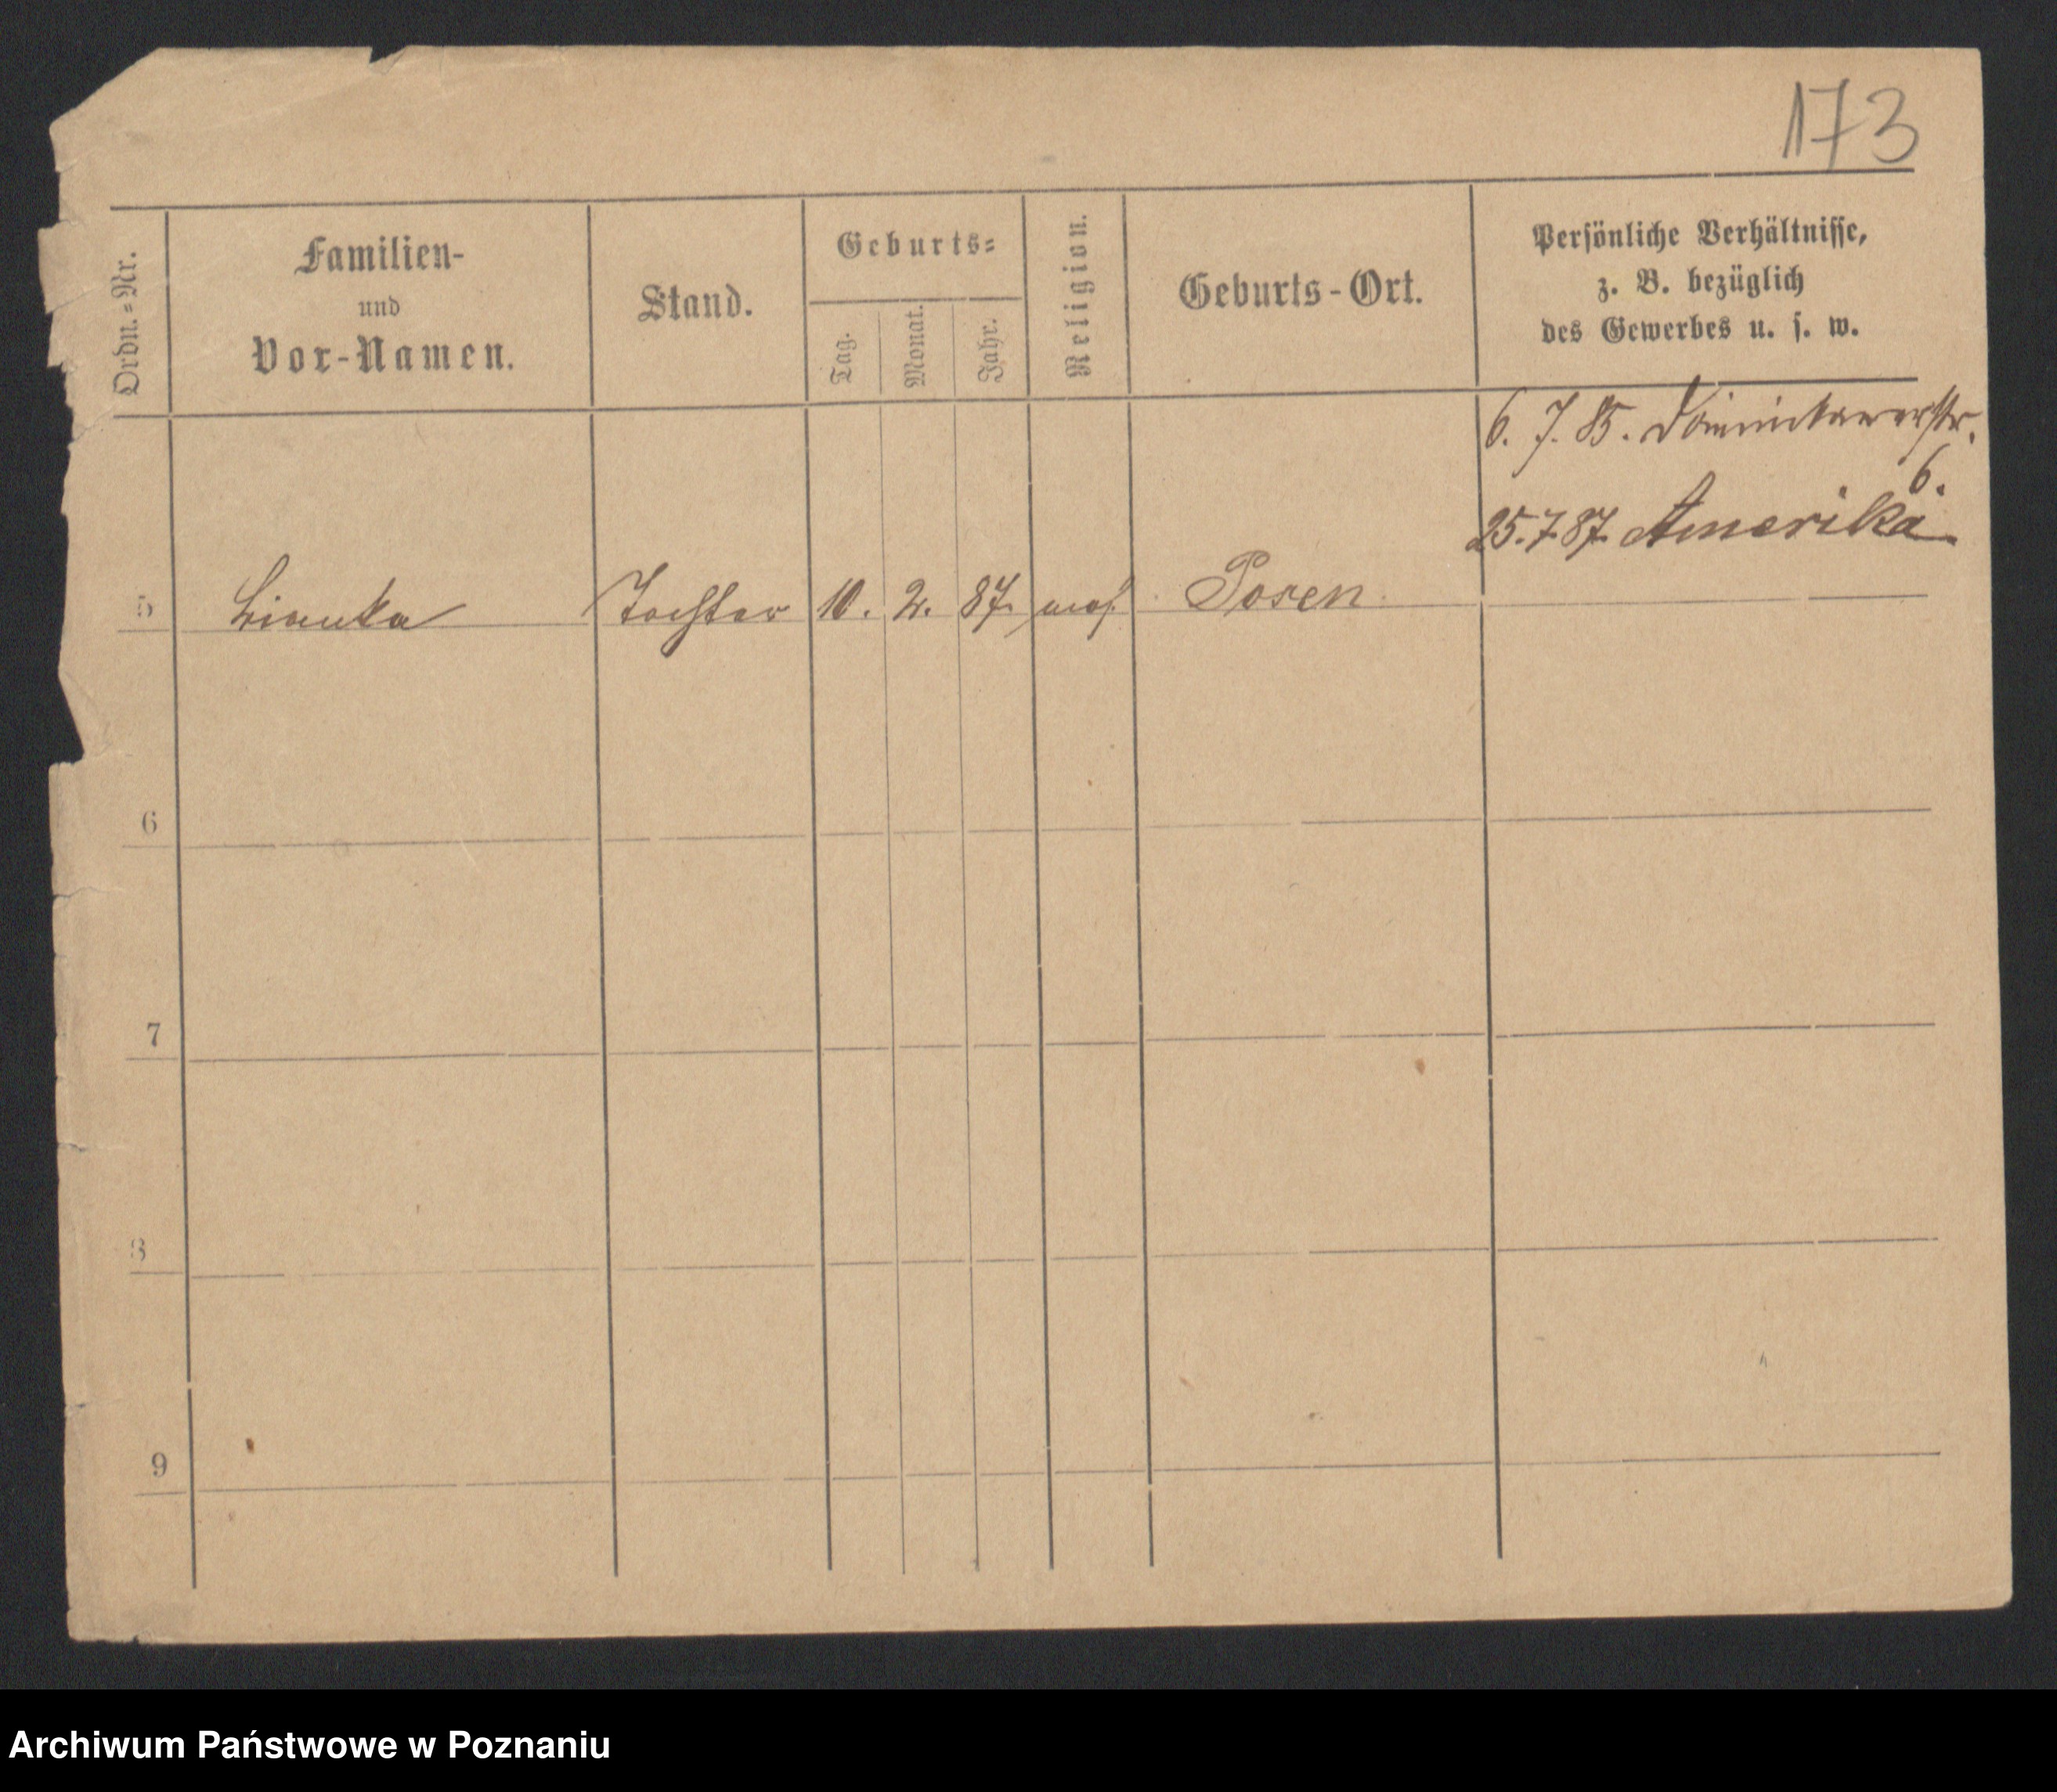 173
Ordn.=Nr.
Familien-
und
Vor-Namen.
Stand.
Geburts=
Tag.
Monat.
Jahr.
Religion.
Geburts-Ort.
Persönliche Verhältnisse,
z. B. bezüglich
des Gewerbes u. s. w.
6. 7. 85. Dominikanerstr.
6.
25.7.87. Amerika.
5 Tochter 10. 2. 87. mos. Posen
6
7
8
9
Archiwum Państwowe w Poznaniu